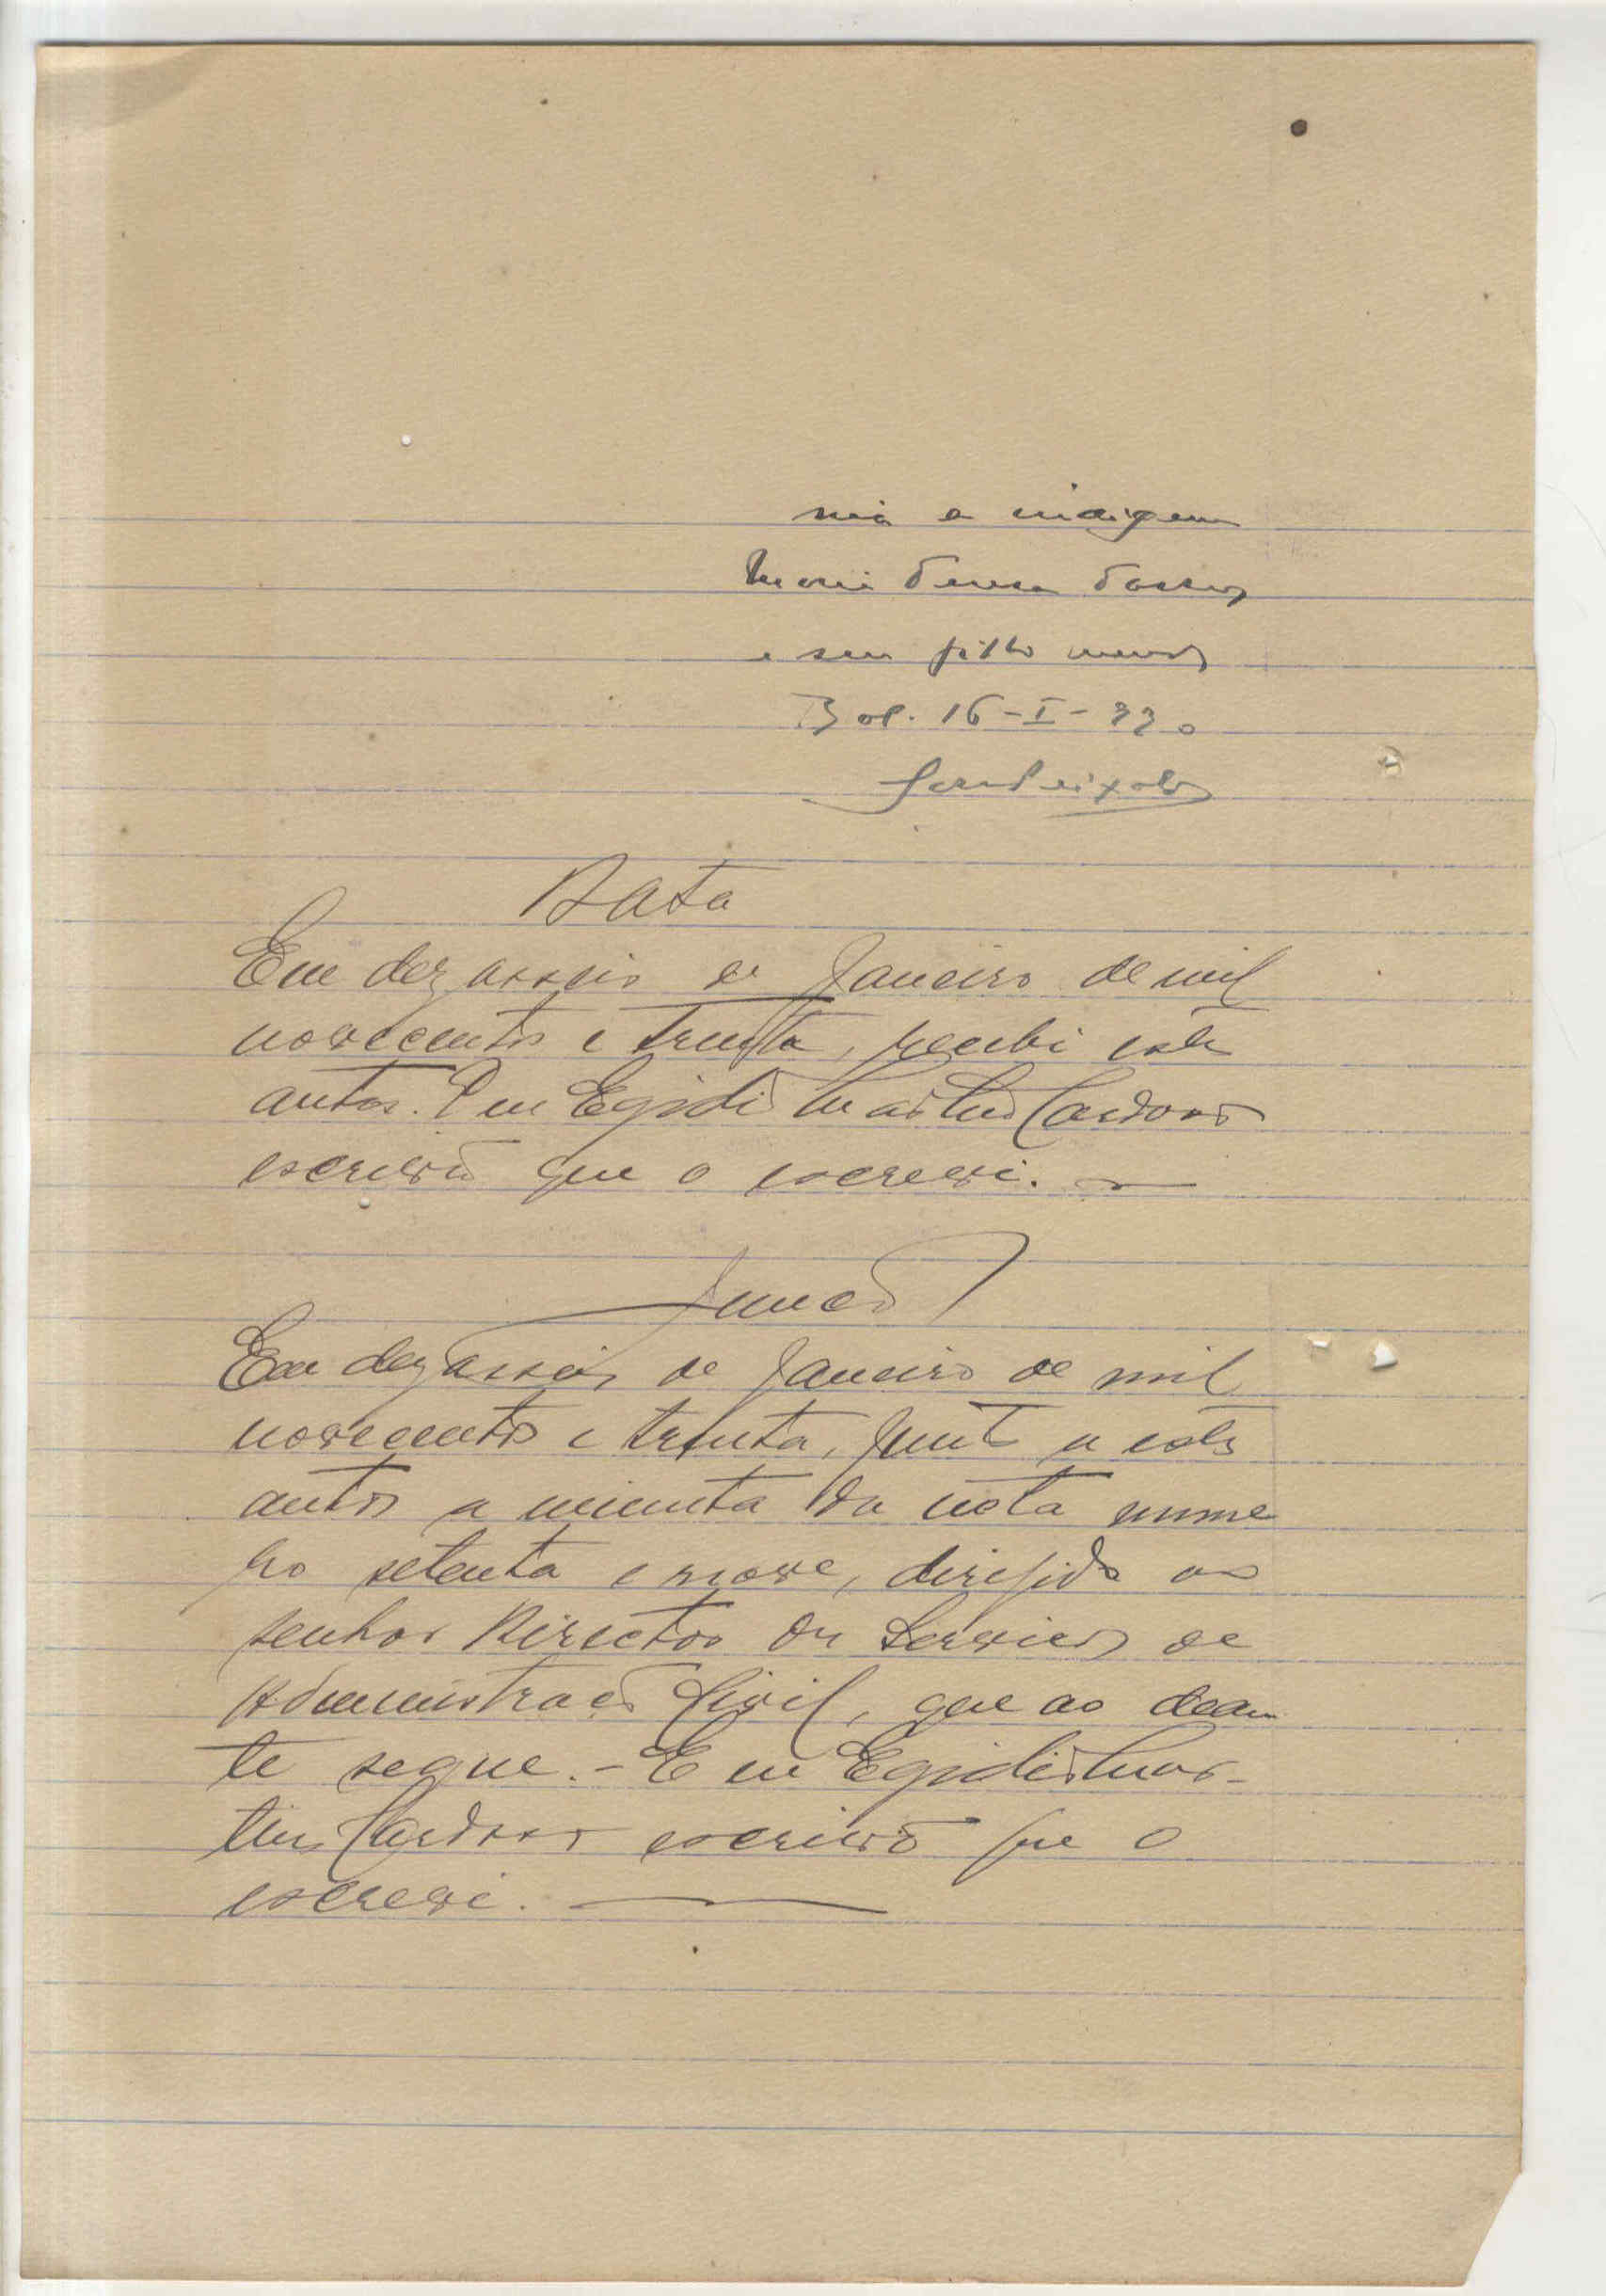 a indigena
Maria
e seu filho menor
Bol. 16-I-930
Data
Em dezasseis de Janeiro de mil
novecentos e trinta, recebi estes
autos. E eu Egidio Martins Cardoso
escrivão que o escrevi.
Junção
Em dezasseis de Janeiro de mil
novecentos e trinta, junto a estes
autos a minuta da nota nume
ro setenta e nove, dirigida ao
senhor Director dos Serviços de
Administração Civil, que ao dean
te segue. - E eu Egidio Mar-
tins Cardoso escrivão que o
escrevi.